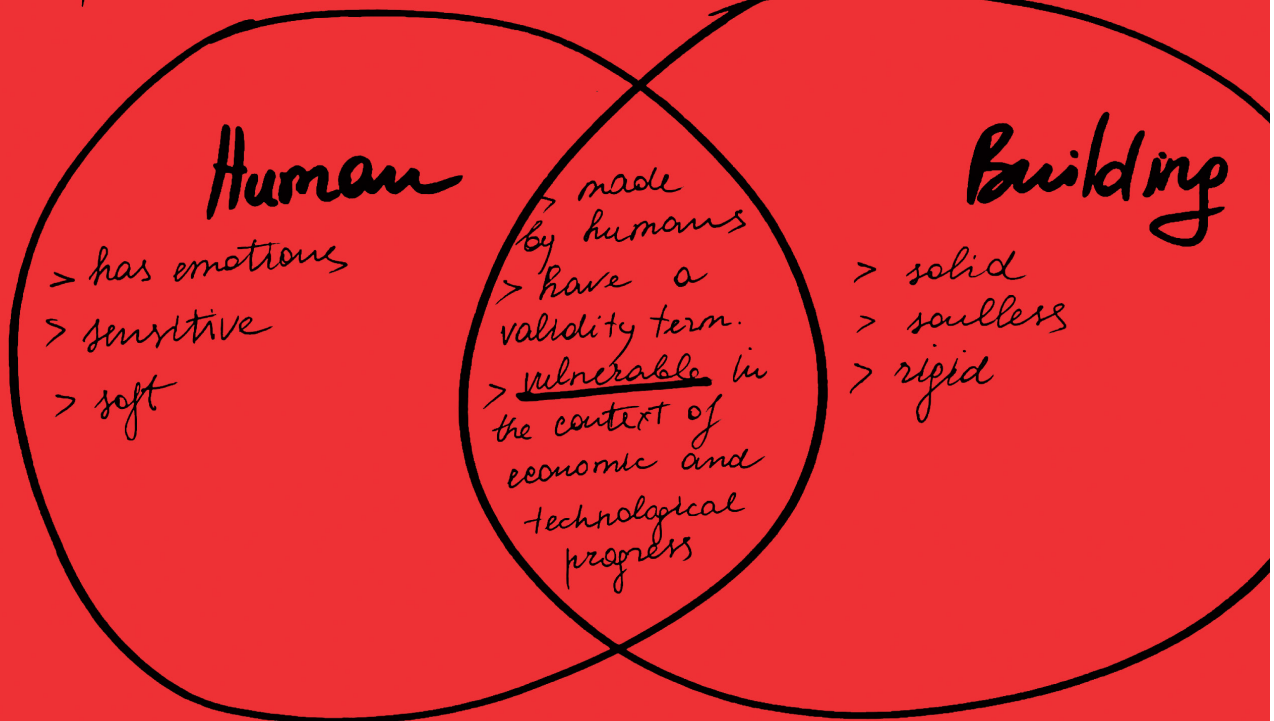 Human
> has emotions
> sensitive
> soft
> made
by humans
> have a
validity term.
> vulnerable in
the context of
economic and
technological
progress
Building
> solid
> soulless
> rigid